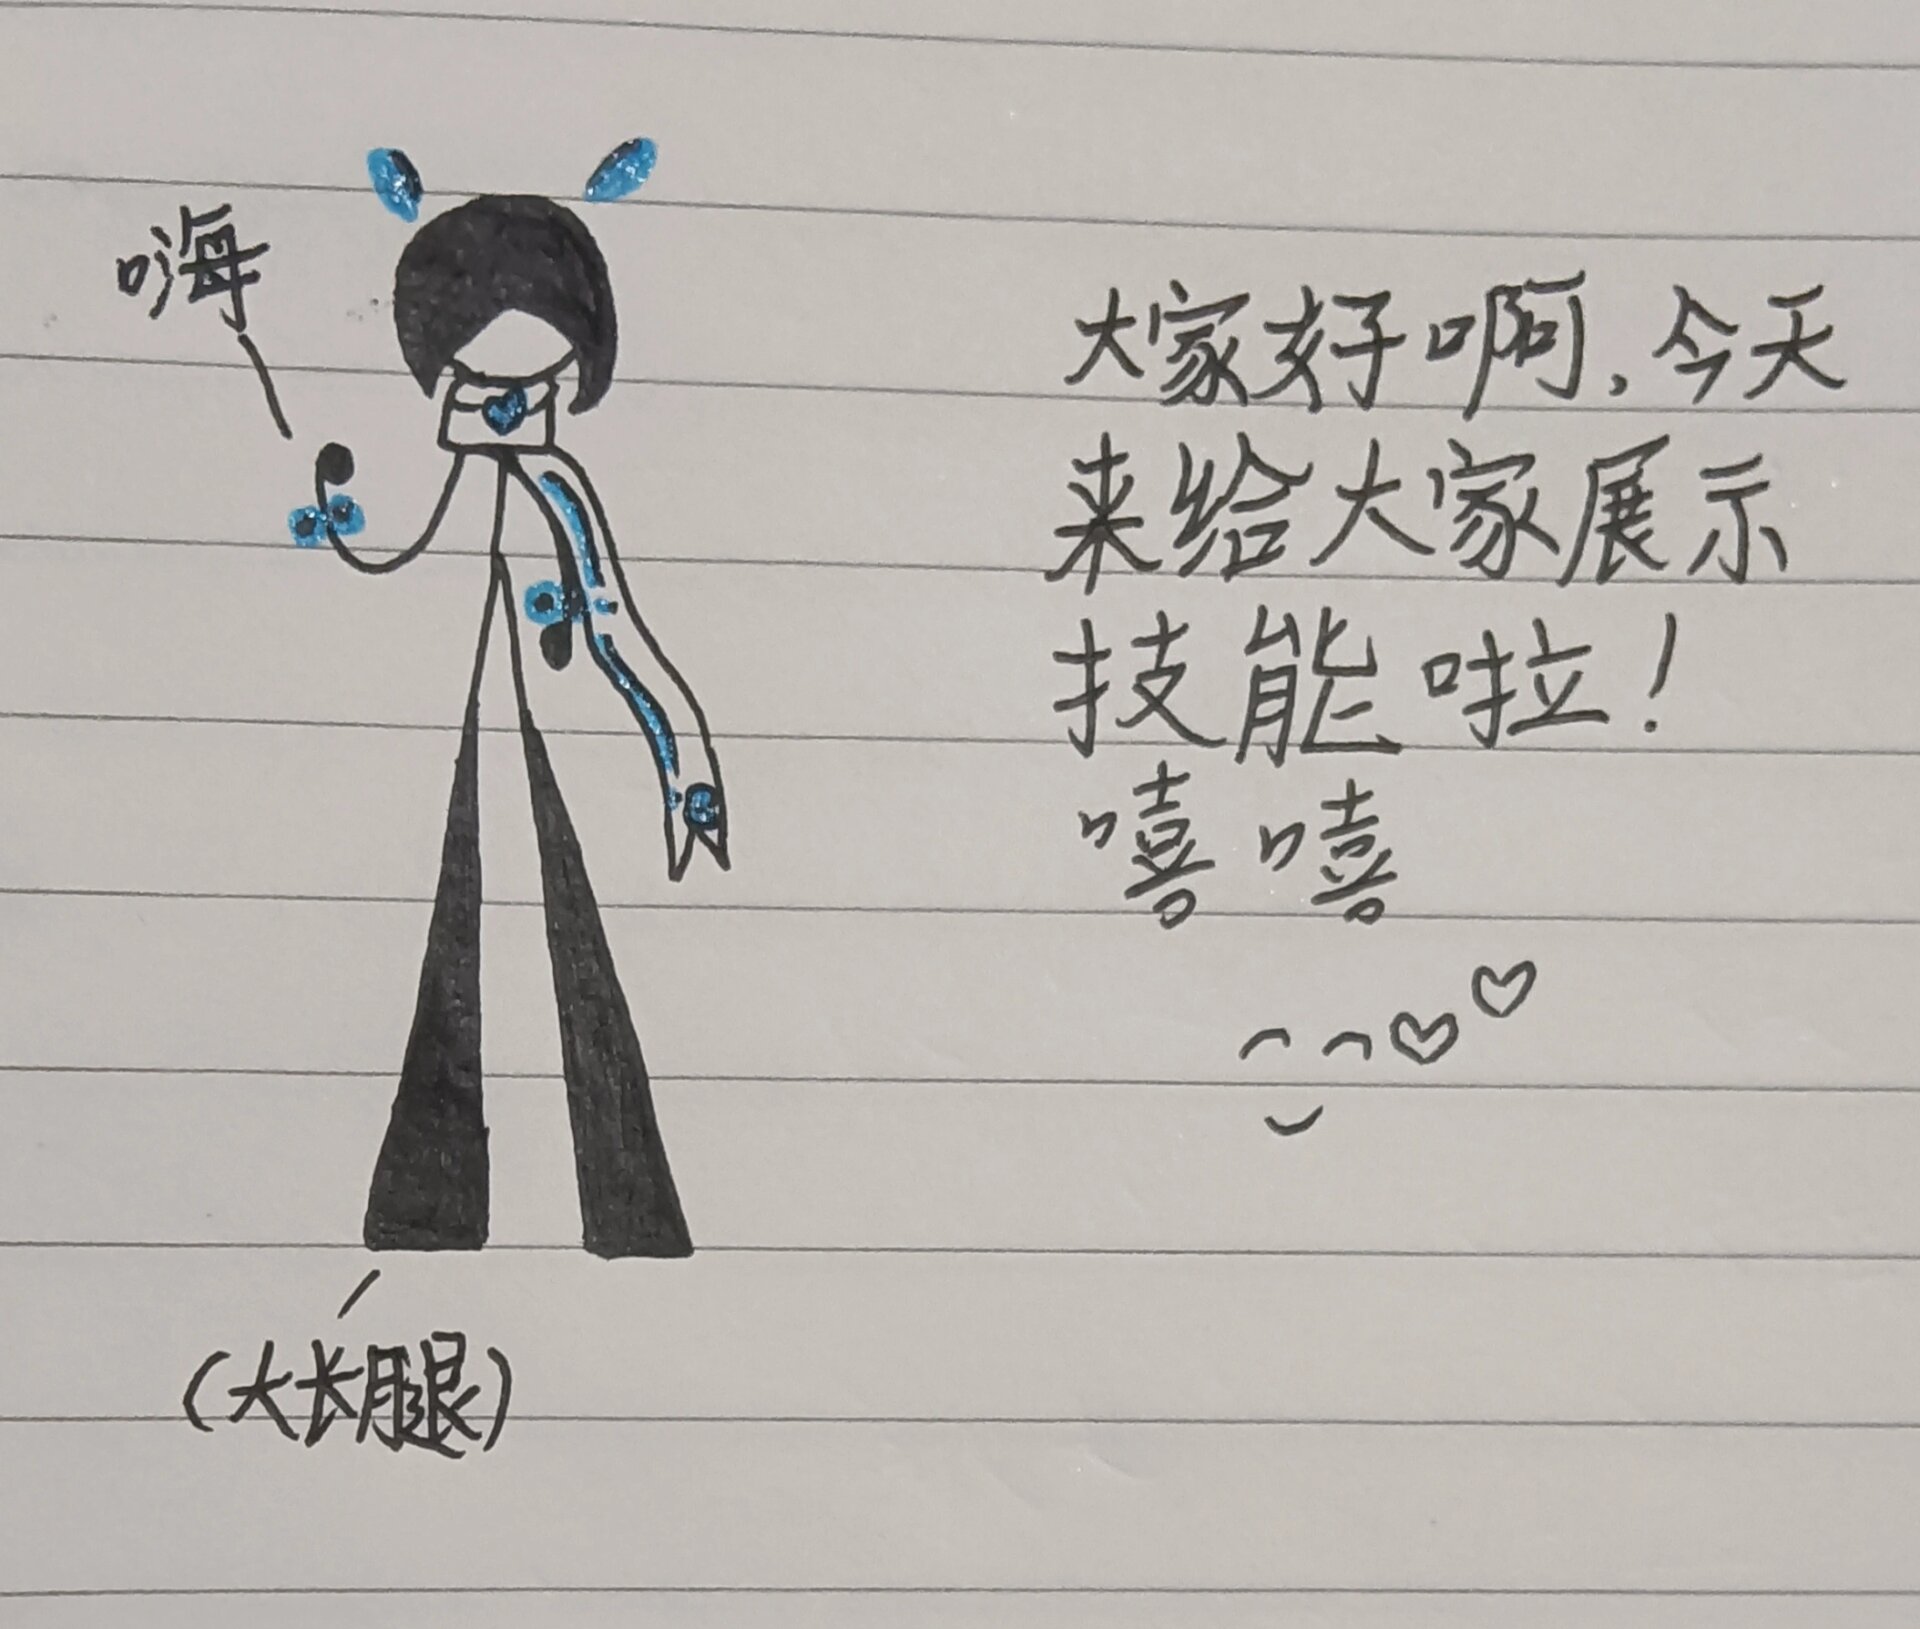 嗨
大家好啊，今天
来给大家展示
技能啦！
嘻嘻
（大长腿）